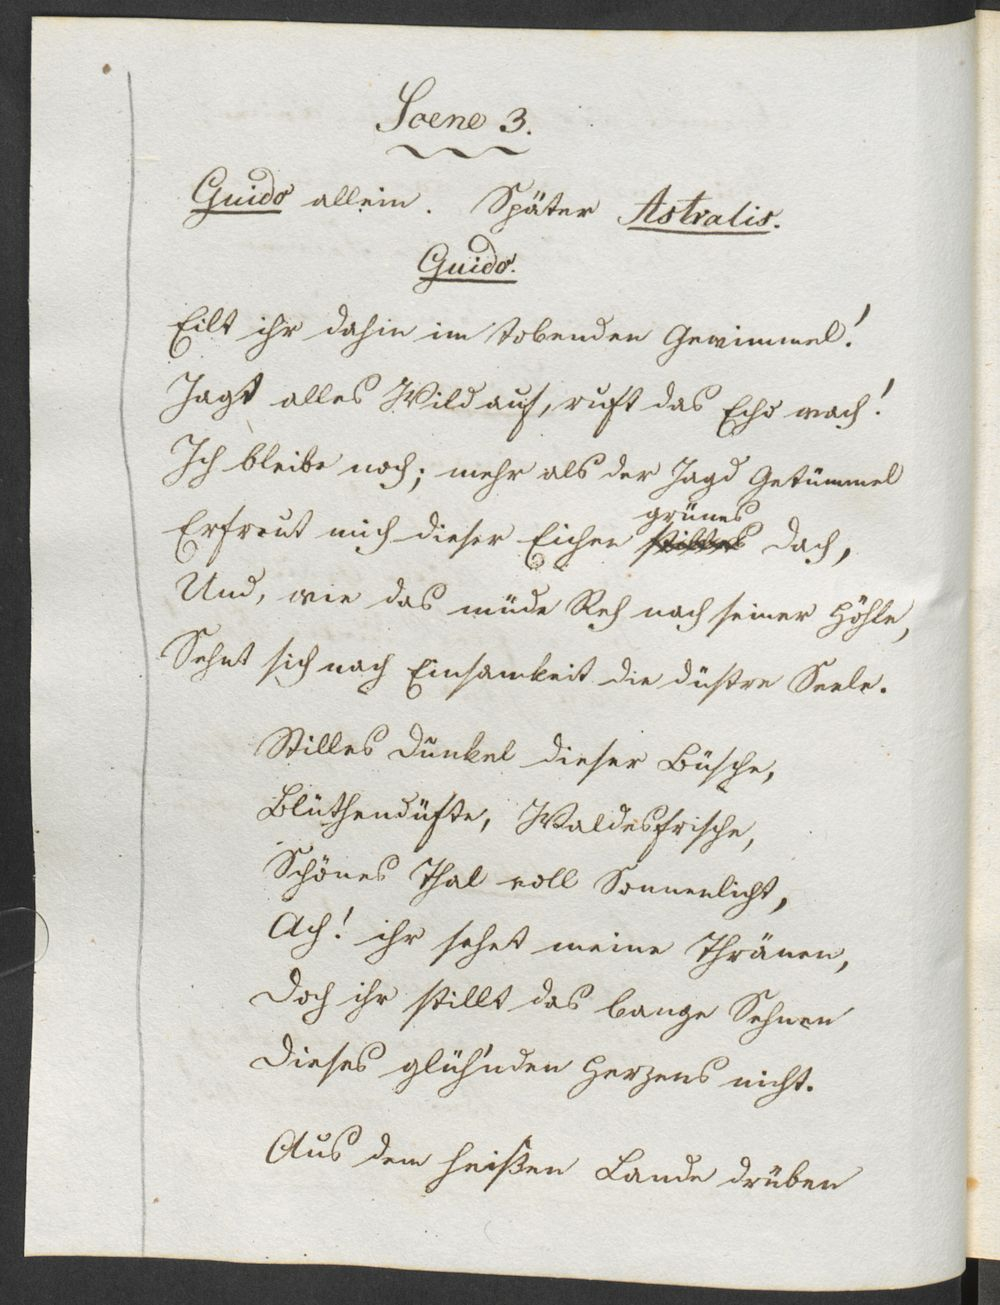 Scene 3.
Guido allein. Später Astralis.
Guido.
Eilt ihr dahin im tobenden Gewimmel!
Jagt alles Wild auf, ruft das Echo wach!
Ich bleibe noch; mehr als der Jagd Getümmel
grünes
Erfreut mich dieser Eichen stilles Dach,
Und, wie das müde Reh nach seiner Höhle,
Sehnt sich nach Einsamkeit die düstre Seele.
Stilles Dunkel dieser Büsche,
Blüthendüfte, Waldesfrische,
Schönes Thal voll Sonnenlicht,
Ach! ihr sehet meine Thränen,
Doch ihr stillt das bange Sehnen
Dieses glüh'nden Herzens nicht.
Aus dem heißen Lande drüben